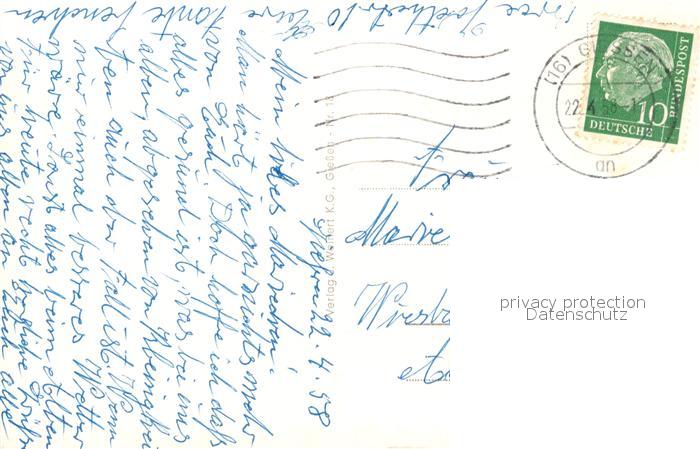 Gießen, 22.4.58
Mein liebes Mariechen!
Man hört ja gar nichts mehr
von Euch. Doch hoffe ich daß
alles gesund ist, was bei uns
allen, abgesehen von Kleinigkei
ten auch der Fall ist. Wenn
nur einmal besseres Wetter
wäre. Sonst alles beim alten
Für heute recht herzliche Grüße
von uns allen an Euch alle
Eure Tante Lenchen
Frau
Marie
Wiesb
Verlag u. Weinert K.G., Gießen - Nr. 18
(16) GIESSEN
22.4.58
DEUTSCHE
BUNDESPOST
10
privacy protection
Datenschutz